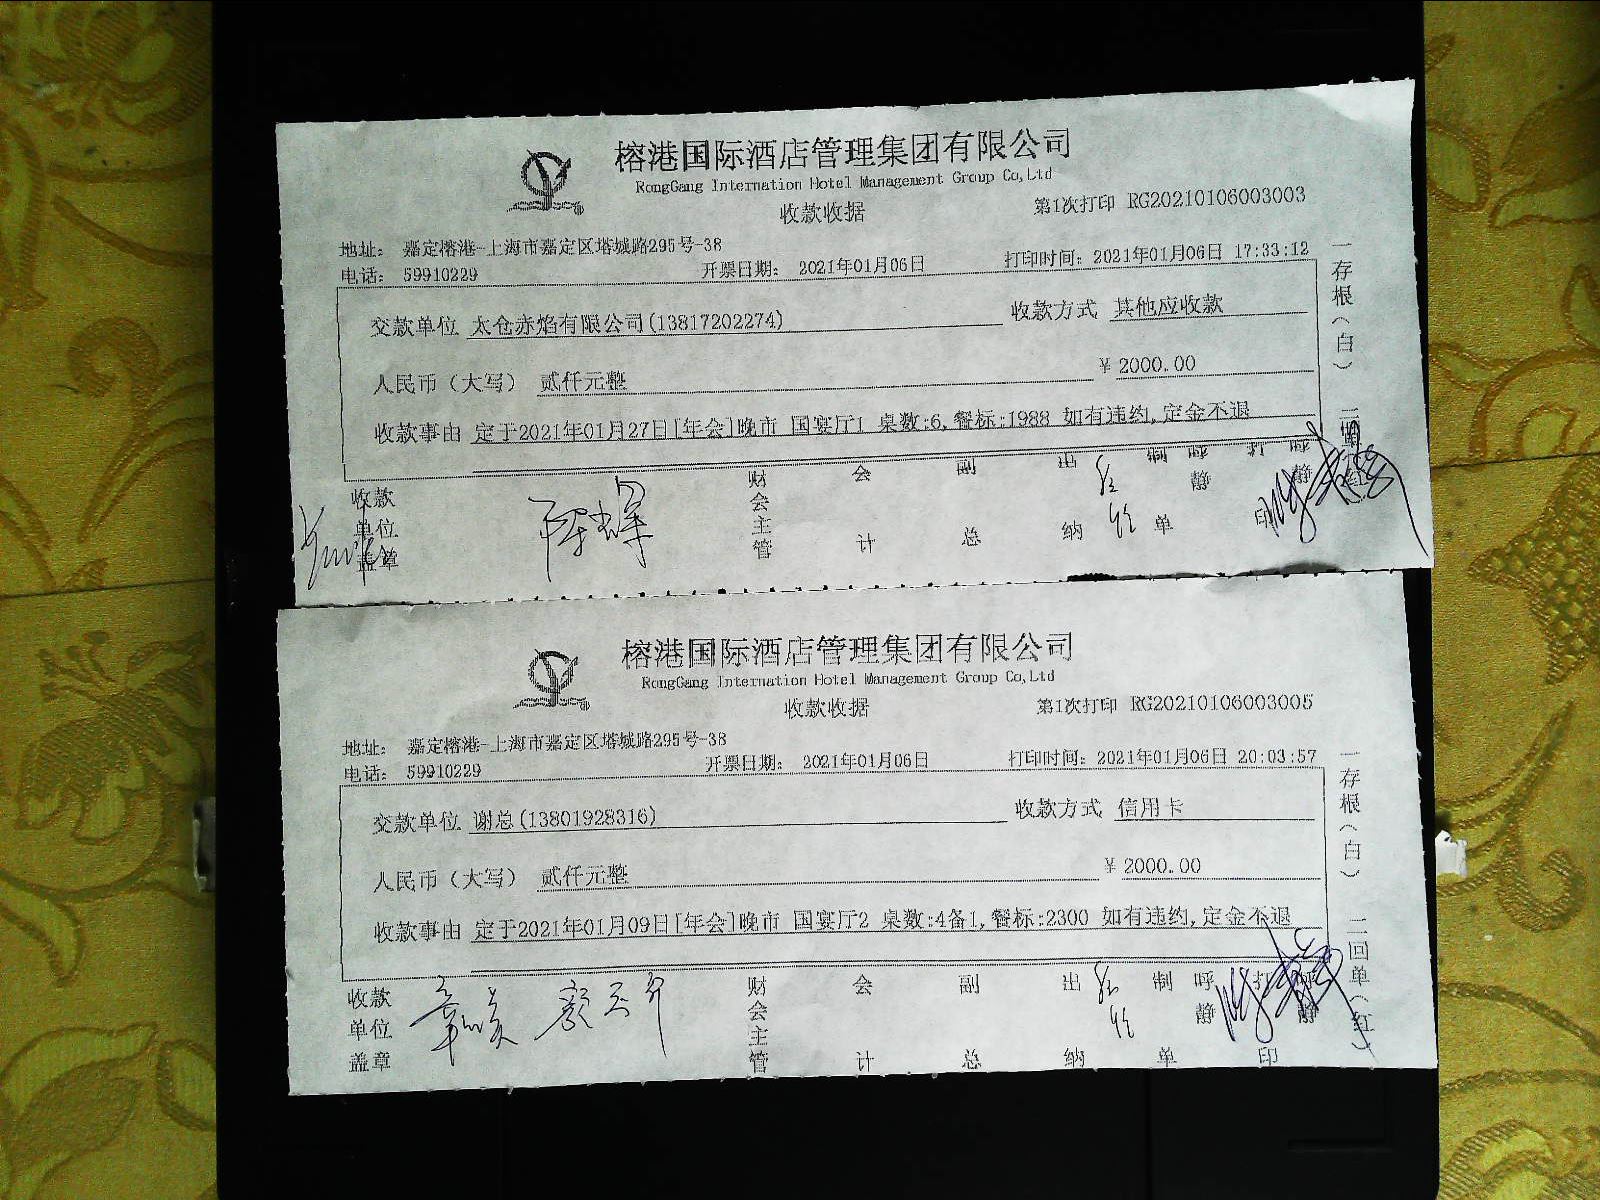 榕港国际酒店管理集团有限公司
RongGang Internation Hotel Management Group Co,Ltd
收款收据
第1次打印 RG20210106003003
地址: 嘉定榕港-上海市嘉定区塔城路295号-38
电话: 59910229
开票日期: 2021年01月06日
打印时间: 2021年01月06日 17:33:12
交款单位 太仓赤焰有限公司(13817202274)
收款方式 其他应收款
人民币（大写） 贰仟元整
¥ 2000.00
收款事由 定于2021年01月27日[年会]晚市 国宴厅1 桌数:6,餐标:1988 如有违约,定金不退
一存根（白）
收款单位盖章
财会主管
会计
副总
出纳
制单
静
打印
静
榕港国际酒店管理集团有限公司
RongGang Internation Hotel Management Group Co,Ltd
收款收据
第1次打印 RG20210106003005
地址: 嘉定榕港-上海市嘉定区塔城路295号-38
电话: 59910229
开票日期: 2021年01月06日
打印时间: 2021年01月06日 20:03:57
交款单位 谢总(13801928316)
收款方式 信用卡
人民币（大写） 贰仟元整
¥ 2000.00
收款事由 定于2021年01月09日[年会]晚市 国宴厅2 桌数:4备1,餐标:2300 如有违约,定金不退
一存根（白） 二回单（红）
收款单位盖章
财会主管
会计
副总
出纳
制单
呼静
打印
呼静